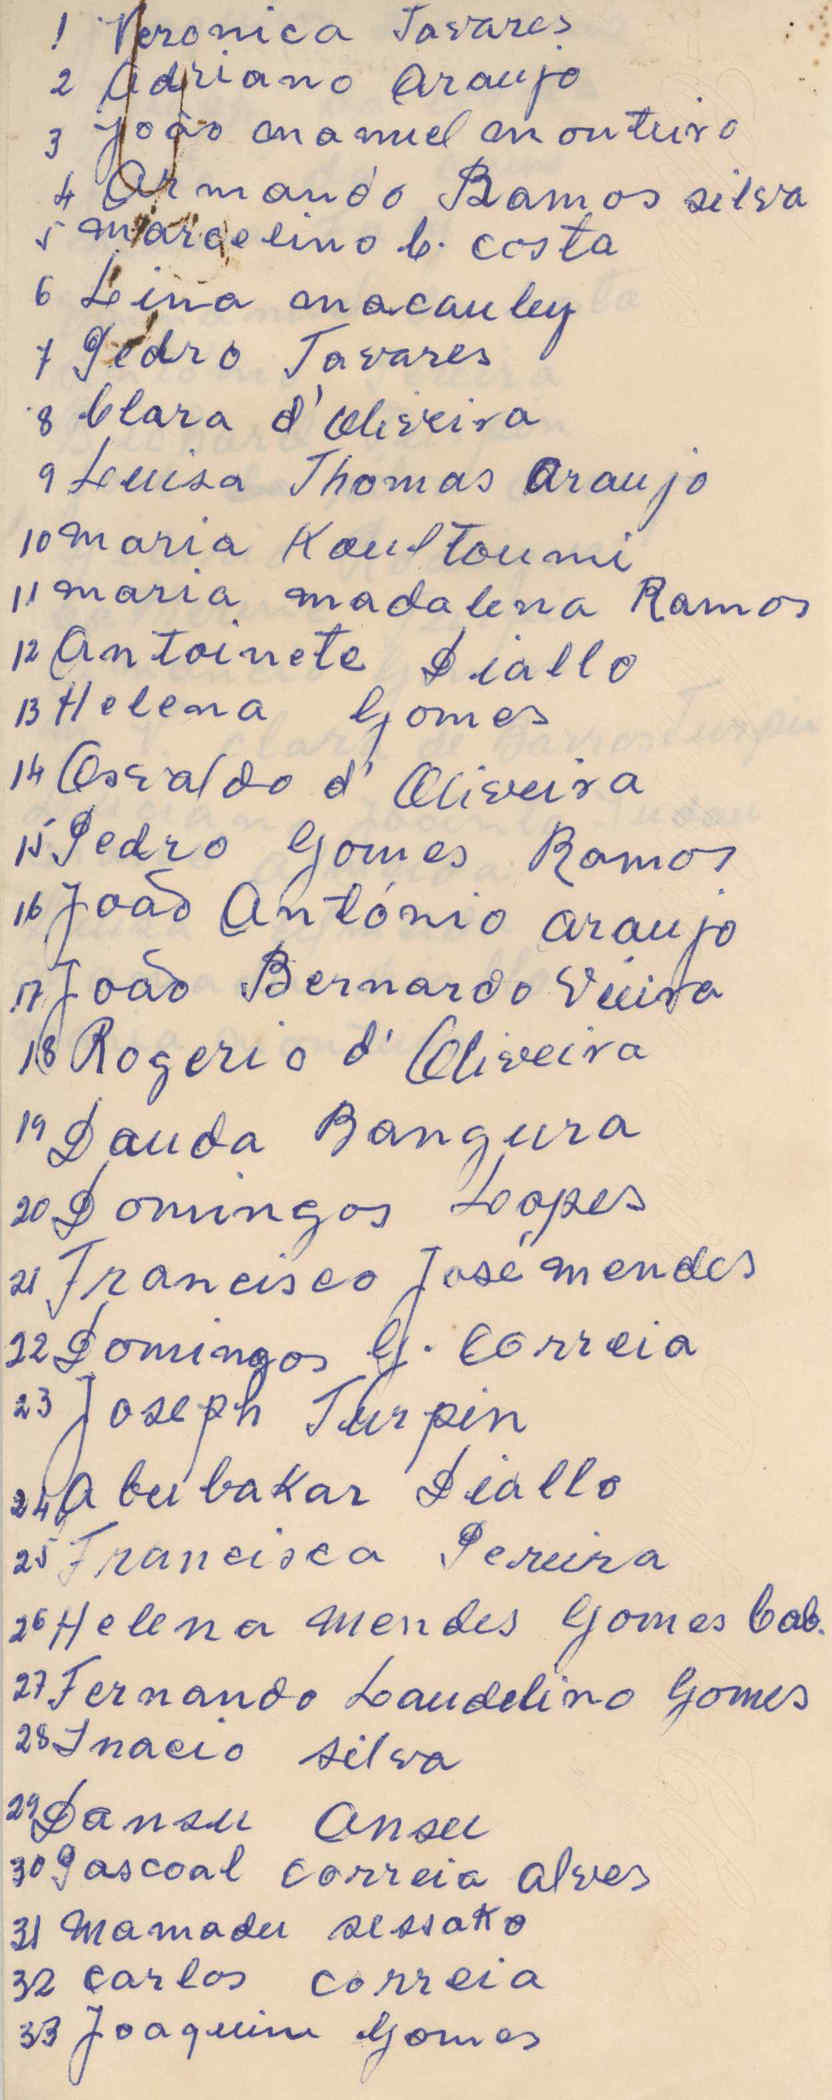 1 Veronica Tavares
2 Adriano Araujo
3 João manuel monteiro
4 Armando Ramos silva
5 Marcelino C. costa
6 Lina macauley
7 Pedro Tavares
8 Clara d'Oliveira
9 Luisa Thomas Araujo
10 maria Koultoumi
11 maria madalena Ramos
12 Antoinete Diallo
13 Helena Gomes
14 Osvaldo d'Oliveira
15 Pedro Gomes Ramos
16 João António Araujo
17 João Bernardo Vieira
18 Rogerio d'Oliveira
19 Dauda Bangura
20 Domingos Lopes
21 Francisco José mendes
22 Domingos G. Correia
23 Joseph Turpin
24 Abubakar Diallo
25 Francisca Pereira
26 Helena mendes Gomes Cab.
27 Fernando Laudelino Gomes
28 Inacio silva
29 Dansu Ansu
30 Pascoal Correia Alves
31 Mamadu sessako
32 Carlos Correia
33 Joaquim Gomes